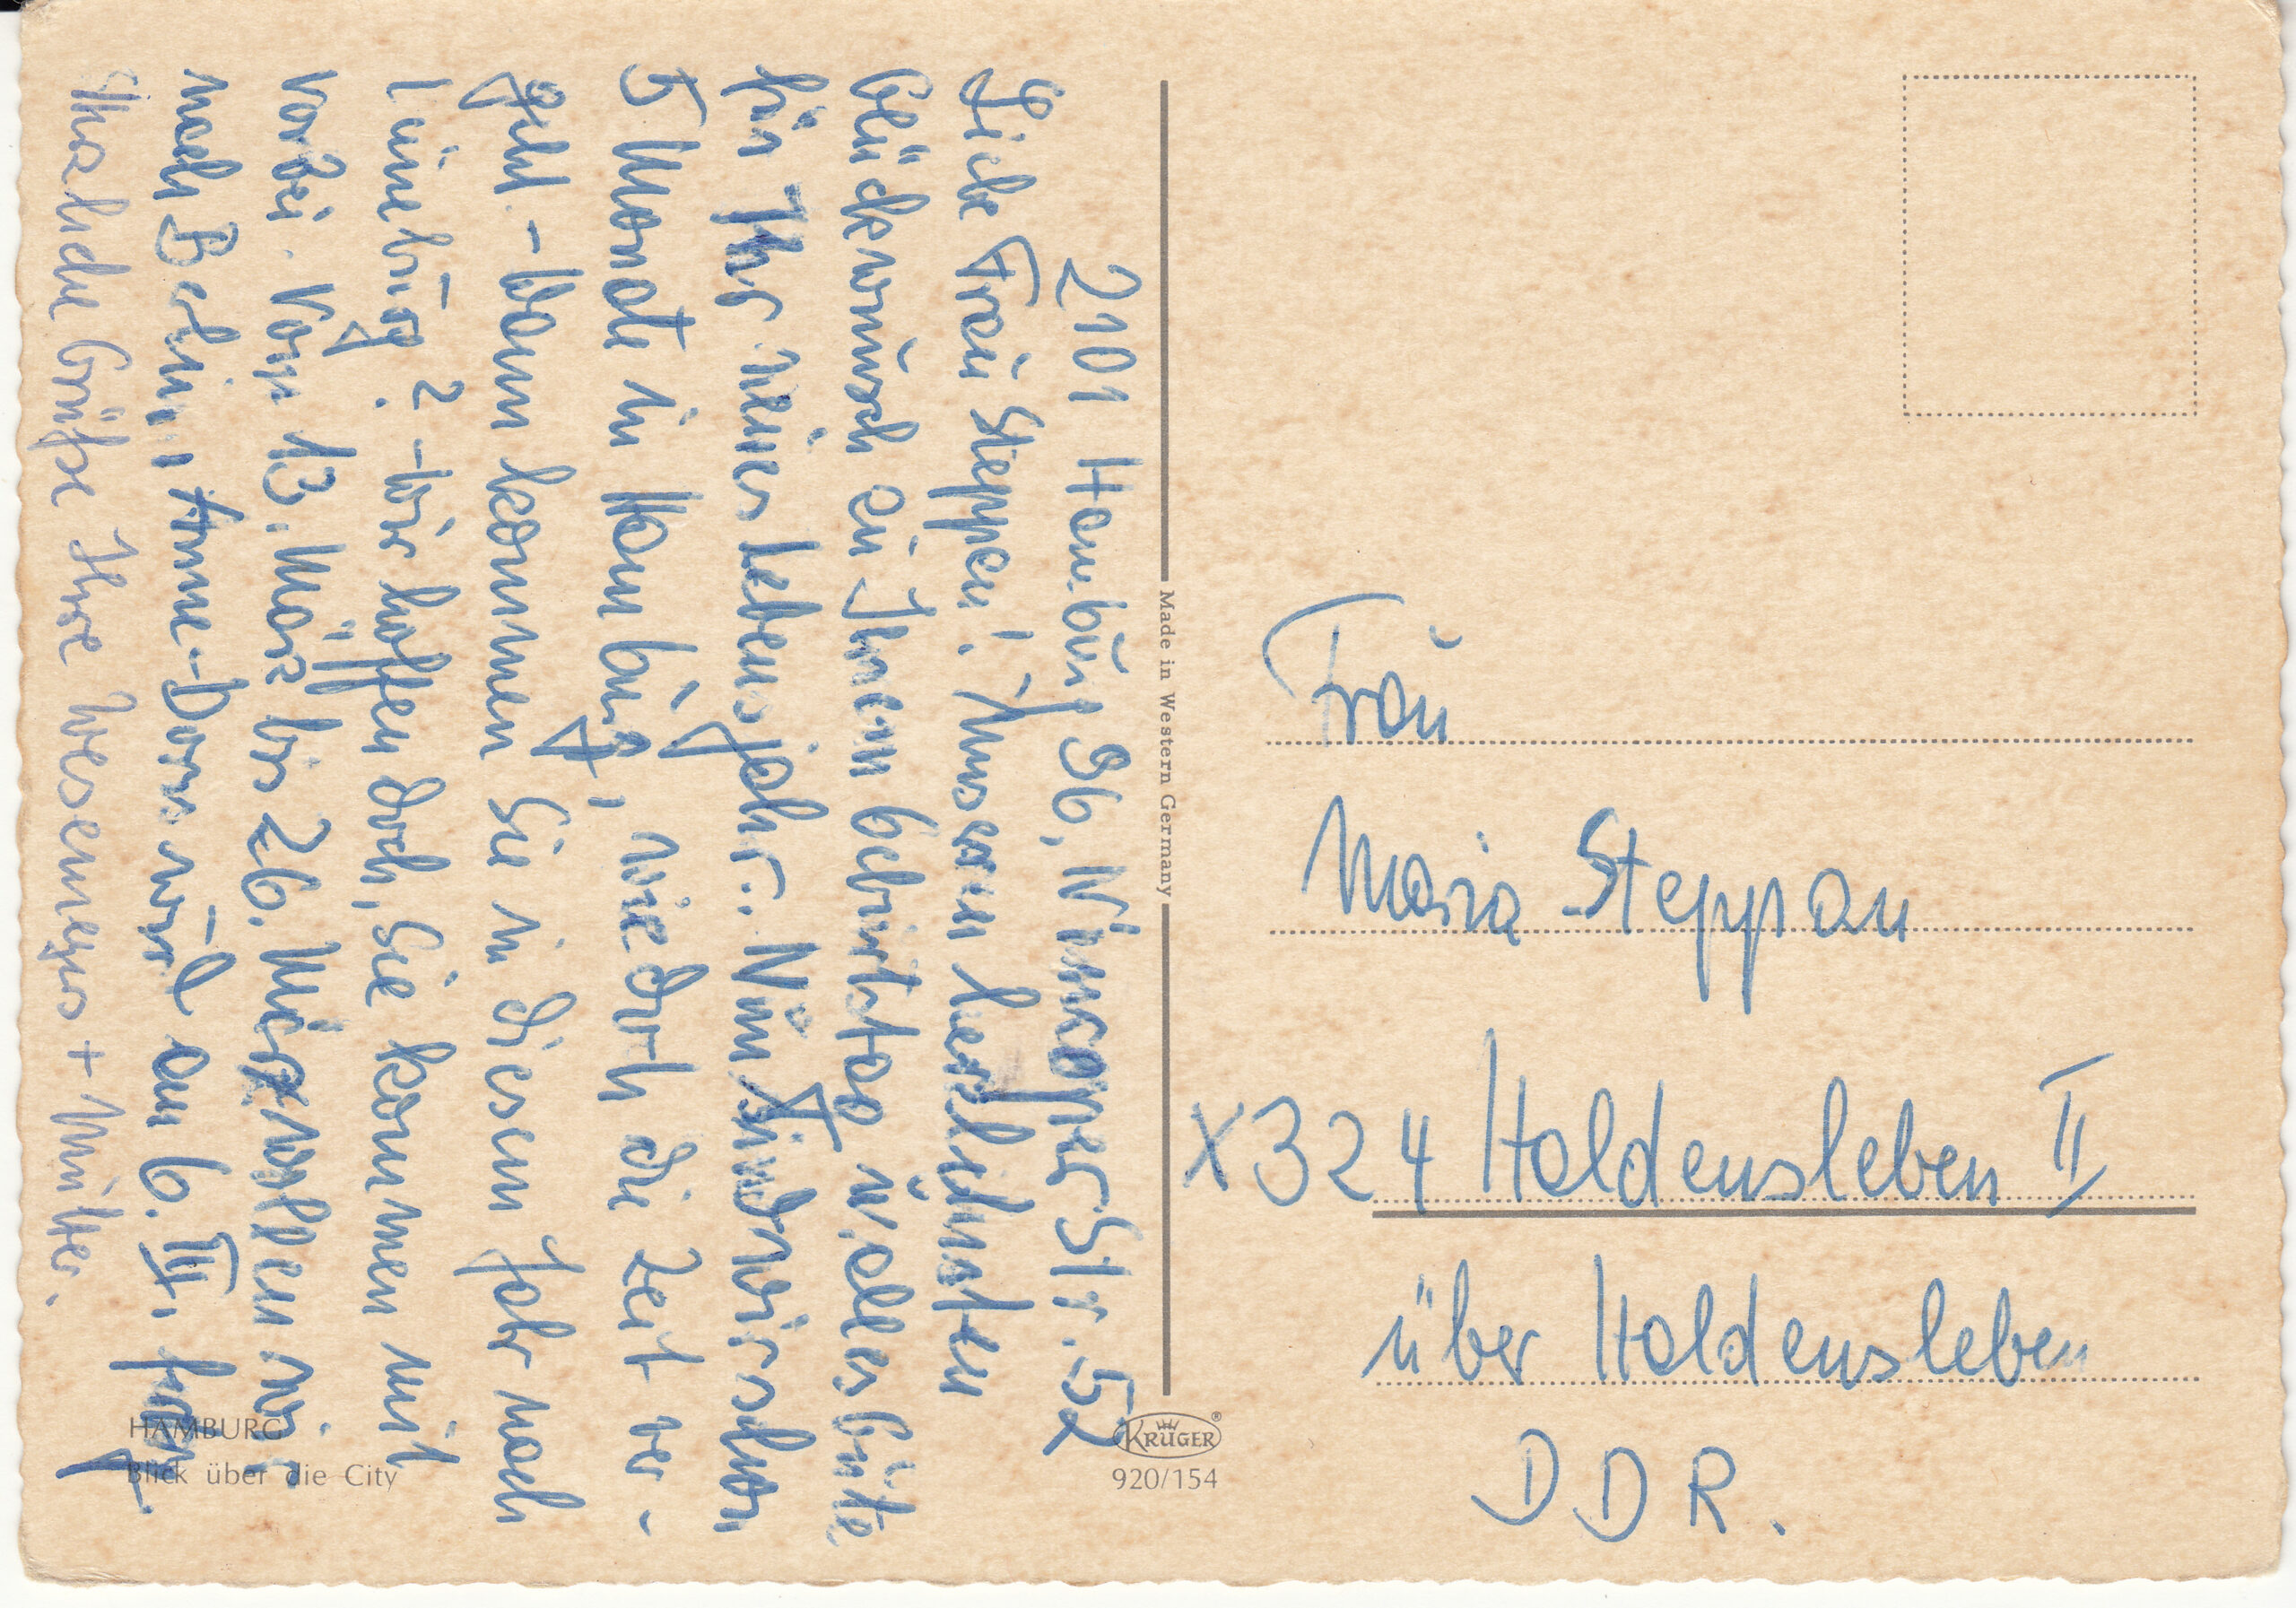 2101 Hamburg 96, Nincoper Str. 52
Liebe Frau Steppan! Unseren herzlichsten
Glückwunsch zu Ihrem Geburtstag u. alles Gute
für Ihr neues Lebensjahr. Nun sind wir schon
5 Monate in Hamburg, wie doch die Zeit ver-
geht. - Wann kommen Sie in diesem Jahr nach
Lüneburg? - Wir hoffen doch, Sie kommen mit
vorbei. Vom 13. März bis 26. März wollen wir
nach Berlin, Anne-Dore wird am 6. III.
Herzliche Grüße Ihre + Mutter.
HAMBURG
Blick über die City
Made in Western Germany
KRÜGER®
920/154
Frau
Maria Steppan
X324 Haldensleben II
über Haldensleben
DDR.